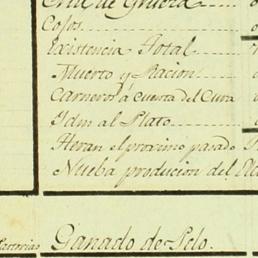 Cria de Gruera
Cojos
Existencia Total
Muerto y Racion
Carneros á cuenta del Cura
Idm al Plato
Heran el proximo pasado
Nueba producion del
Ganado de Pelo.